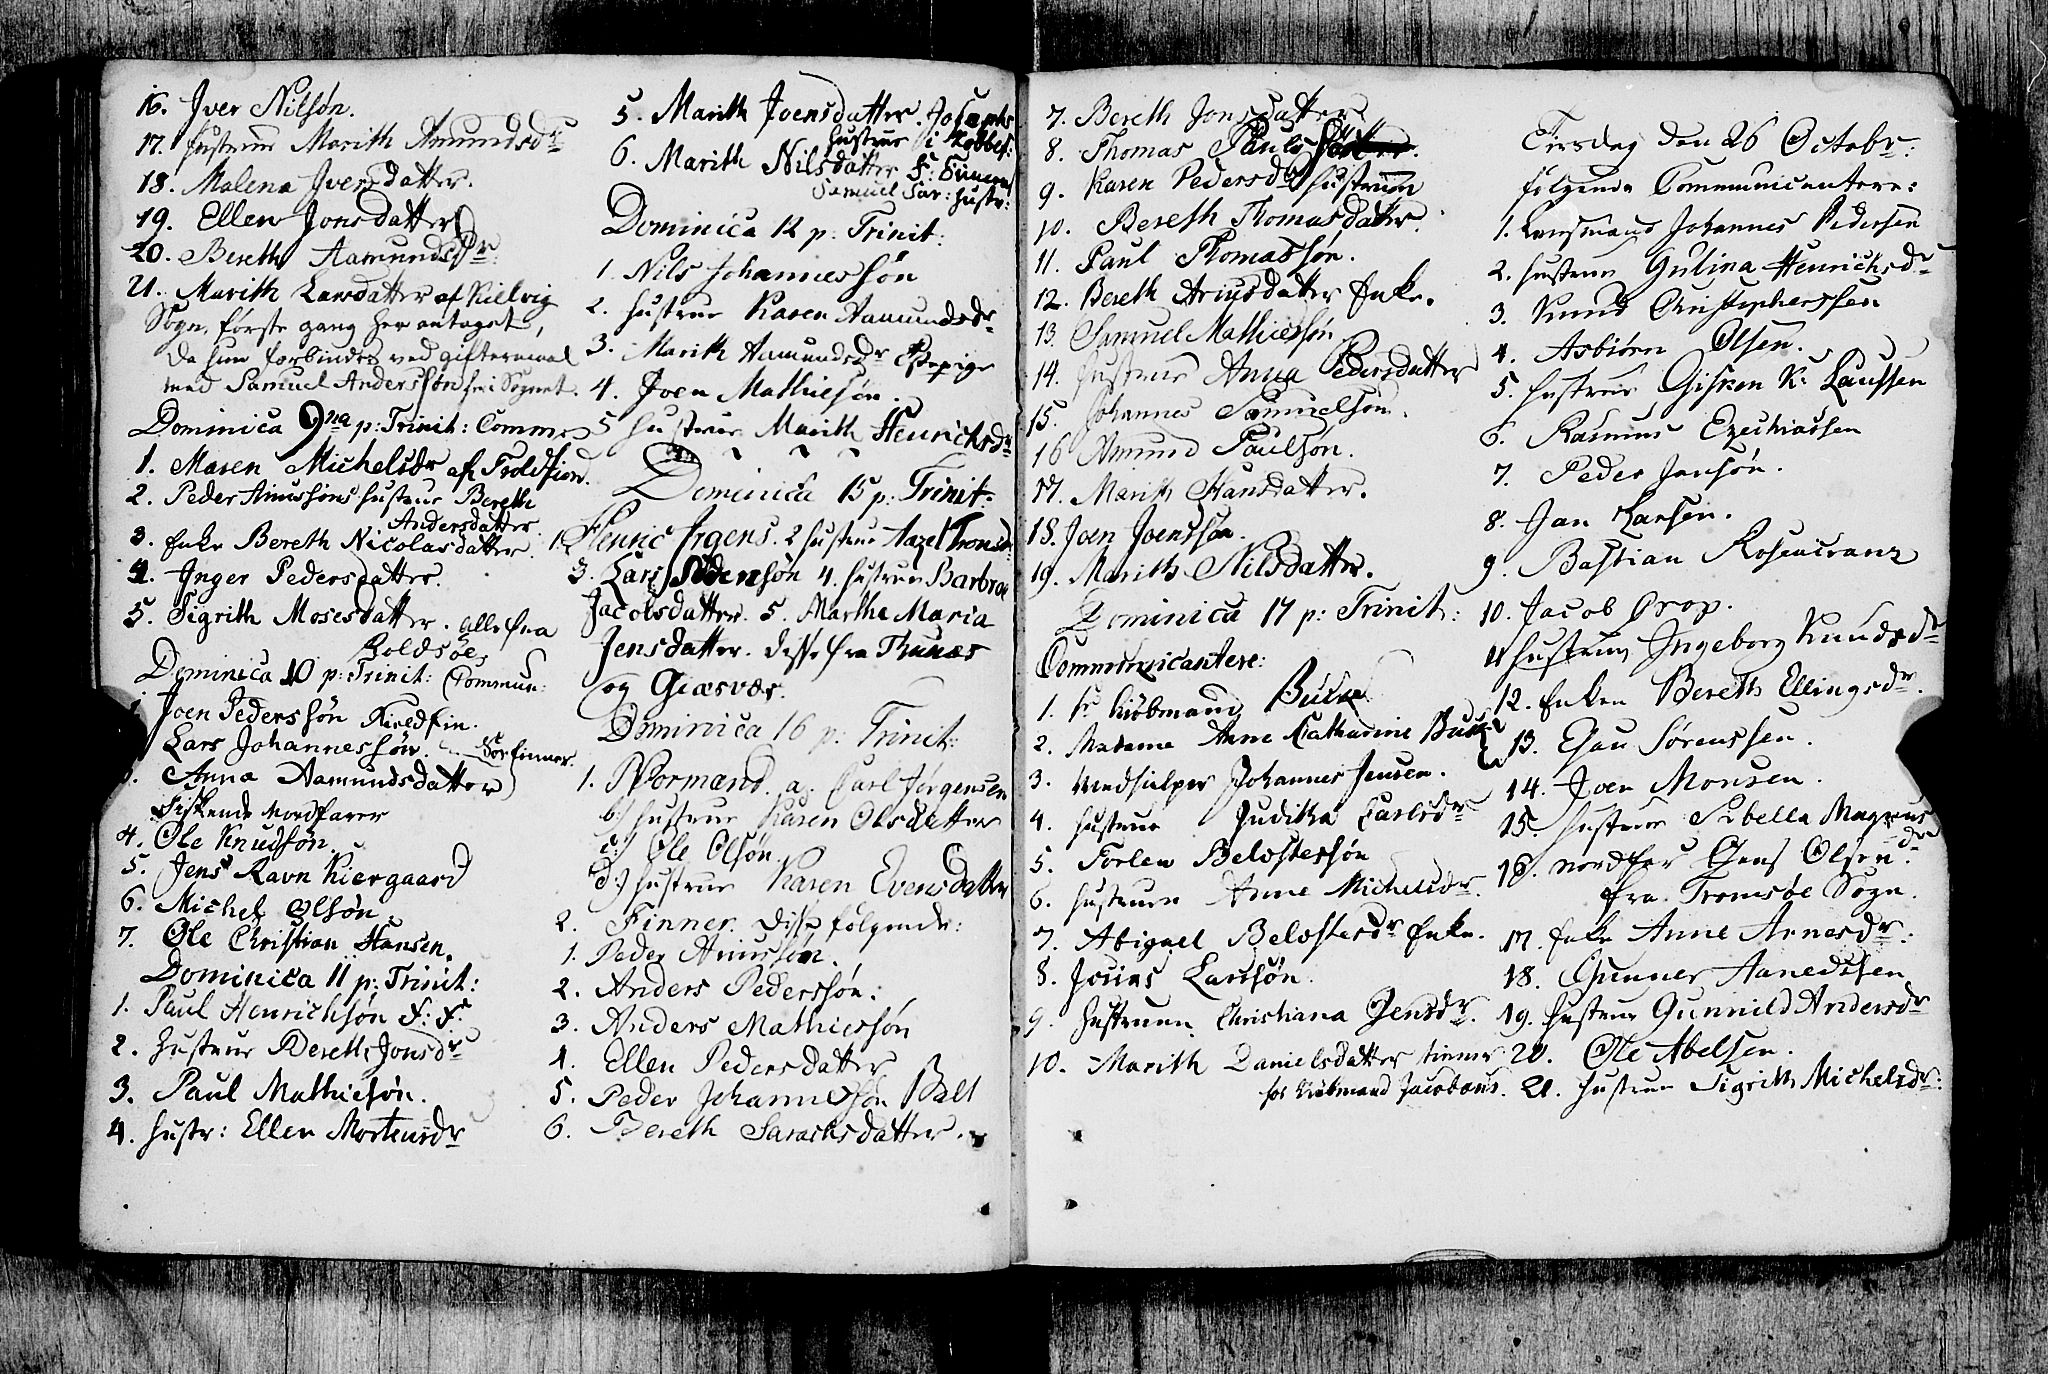 16. Iver Nilsøn.
17. hustrue Marith Amundsdr
18. Malena Iversdatter.
19. Ellen Jonsdatter
20. Bereth Aamundsdr:
21. Marith Larsdatter af Kielvig
Sogn, første gang her antaget,
da hun forbindes ved giftermaal
med Samuel Anderssøn her i Sognet.
Dominica 9na p: Trinit: Comm:
1. Maren Michelsdr af Troldfiord.
2. Peder Aniussøns hustrue Bereth
Andersdatter
3. Enke Bereth Nicolasdatter.
4. Inger Pedersdatter.
5. Sigrith Mosesdatter. alle fra
Roldsøe,
Dominica 10 p: Trinit: Commun:
1 Joen Pederssøn
Lars Johannessøn. Sørfinner.
3. Anna Aamundsdatter
Fiskende Nordfarer
4. Ole Knudsøn.
5. Jens Ravn Kiergaard
6. Michel Olsøn
7. Ole Christian Hansen.
Dominica 11 p: Trinit:
1. Paul Henrichsøn F: F:
2. hustrue Bereth Jonsdr
3. Paul Mathiesøn.
4. hustr: Ellen Mortensdr
5. Marith Joensdatter. Josephs
hustrue i Kobbef:
6. Marith Nilsdatter F:
Samuel Sar: hustr:
Dominica 12 p: Trinit:
1. Nils Johannessøn
2. hustrue Karen Aamundsdr
3. Marith Aamundsdr
4. Joen Mathiesøn.
5 hustrue Marith Henrichsdr
Dominica 15 p: Trinit:
1. Henric Irgens. 2 hustrue
3. Lars Pedersøn 4. hustrue Barbroe
Jacobsdatter. 5. Marthe Maria
Jensdatter. disse fra Thunæs
og Giæsvær.
Dominica 16 p: Trinit:
1. Normænd. a. Carl Jørgensen
b:) hustrue Karen Olsdatter
c:) Ole Olsøn.
d:) hustrue Karen Evensdatter
2. Finner. disse følgende:
1. Peder Aniussøn.
2. Anders Pederssøn:
3. Anders Mathiessøn
4. Ellen Pedersdatter
5. Peder Johannessøn Balt
6. Bereth Sarachsdatter.
7. Bereth Jonsdatter
8. Thomas Pauls
9. Karen Pedersdr hustrue
10. Bereth Thomasdatter.
11. Paul Thomassøn.
12. Bereth Ariusdatter Enke.
13. Samuel Mathiessøn
14. hustrue Anna Pedersdatter
15. Johannes Samuelsøn.
16 Amund Paulsøn.
17. Marith Hansdatter.
18. Joen Joenssøn.
19. Marith Nilsdatter.
Dominica 17 p: Trinit:
Communicantere:
1. Hr Kiøbmand Buck
2. Madame Anne Catharine Buck
3. Medhielper Johannes Jensen.
4. hustrue Juditha Carlsdr
5. Torlew Belostersøn
6. hustruen Anne Michelsdr.
7. Abigael Belostersdr Enke.
8. Jonas Larssøn.
9. hustruen Christiana Jensdr.
10. Marith Danielsdatter tiener
hos Kiøbmand Jacobæus.
Tirsdag den 26 Octobr:
følgende Communicantere:
1. Lensmand Johannes Pedersen
2. hustrue Gulina Henrichsdr
3. Knud Christophersen
4. Asbiørn Olsen.
5. hustrue Gisken K: Laussen
6. Rasmus Ezechiassen
7. Peder Jansøn.
8. Jan Larsen.
9. Bastian Rosencranz
10. Jacob Prop.
11 hustrue Ingeborg Knudsdr
12. Enken Bereth Ellingsdr.
13. Esau Sørenssen.
14. Joen Monsen.
15. hustrue Sibella Magnus
dr
16. nordfar Jens Olsen.
fra Tromsøe Sogn.
17. Enke Anne Arnesdr:
18. Gunner Aanedssen
19. hustrue Gunnild Andersdr
20. Ole Abelsen.
21. hustrue Sigrith Michelsdr: